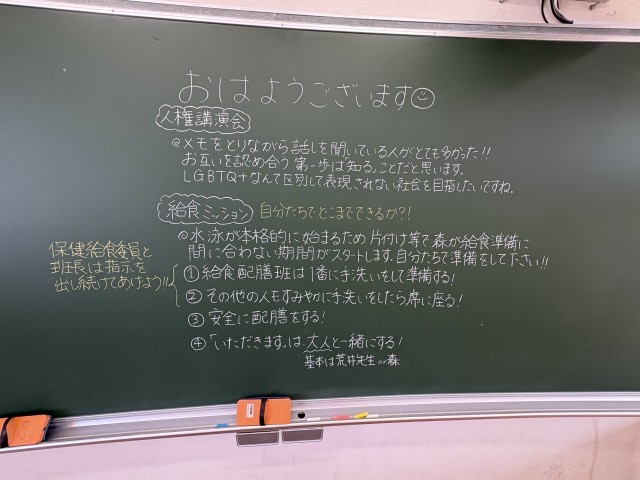 おはようございます☺
人権講演会
◎メモをとりながら話しを聞いている人がとても多かった!!
お互いを認め合う第一歩は「知る」ことだと思います。
LGBTQ+なんて区別して表現されない社会を目指したいですね。
給食ミッション 自分たちでどこまでできるか?!
◎水泳が本格的に始まるため片付け等で森が給食準備に
間に合わない期間がスタートします。自分たちで準備をして下さい!!
保健給食委員と
班長は指示を
出し続けてあげよう!!
①給食配膳班は1番に手洗いをして準備する!
②その他の人もすみやかに手洗いをしたら席に座る!
③安全に配膳をする!
④「いただきます」は大人と一緒にする!
基本は荒井先生 or 森